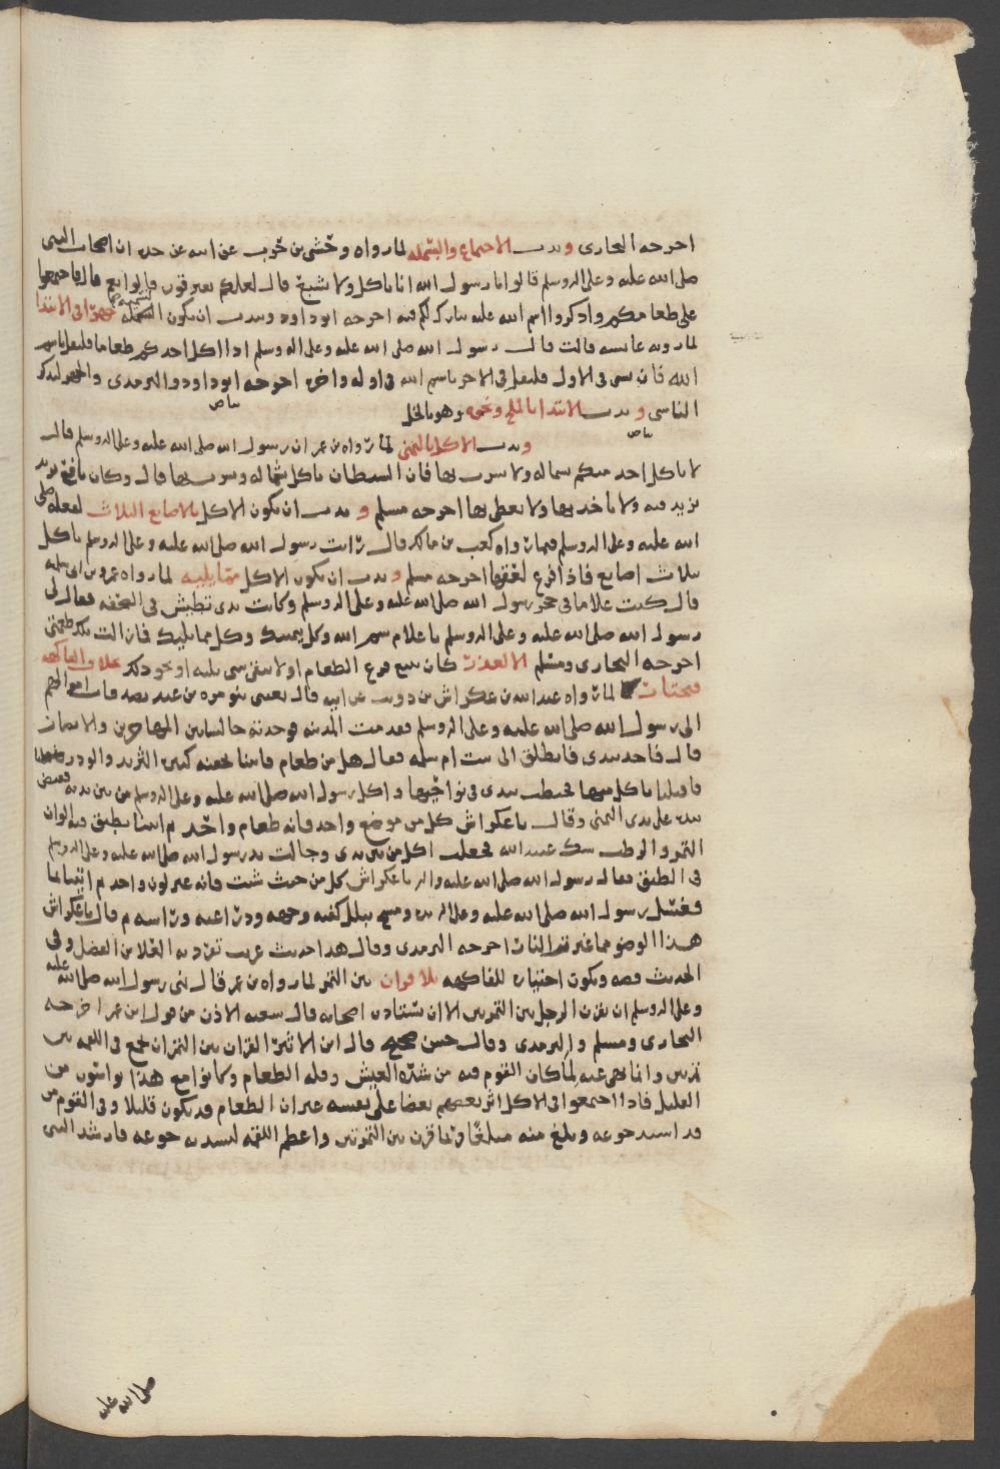 اخرجه البخاري وندب الاجتماع والبسملة لما رواه وحشي بن حرب عن ابيه عن جده ان اصحاب النبي
صلى الله عليه وعلى اله وسلم قالوا يا رسول الله انا ناكل ولا نشبع قال لعلكم تفترقون قالوا نعم قال فاجتمعوا
على طعامكم واذكروا اسم الله عليه يبارك لكم فيه اخرجه ابو داود وندب ان يكون التسمية جهرا في الابتدا
لما روته عايشه قالت قال رسول الله صلى الله عليه وعلى اله وسلم اذا اكل احدكم طعاما فليقل باسم
الله فان نسي في الاول فليقل في الاخر باسم الله في اوله واخره اخرجه ابو داود والترمذي والجهر ليذكر
الناسي وندب الابتدا بالملح ونحوه وهو بالخل بياض
بياض وندب الاكل باليمنى لما رواه بن عمر ان رسول الله صلى الله عليه وعلى اله وسلم قال
لا ياكل احد منكم بشماله ولا يشرب بها فان الشيطان ياكل بشماله ويشرب بها قال وكان نافع يزيد
يزيد فيه ولا ياخذ بها ولا يعطي بها اخرجه مسلم وندب ان يكون الاكل بالاصابع الثلاث لفعله صلى
الله عليه وعلى اله وسلم فيما رواه كعب بن مالك قال رايت رسول الله صلى الله عليه وعلى اله وسلم ياكل
بثلاث اصابع فاذا فرغ لعقها اخرجه مسلم وندب ان يكون الاكل مما يليه لما رواه عمرو بن ابي سلمه
قال كنت غلاما في حجر رسول الله صلى الله عليه وعلى اله وسلم وكانت يدي تطيش في الصحفه فقال لي
رسول الله صلى الله عليه وعلى اله وسلم يا غلام سم الله وكل بيمينك وكل مما يليك فما زالت تلك طعمتي
اخرجه البخاري ومسلم الا لعذر كان يبيع فرغ الطعام اولا يبقى شي يليه او نحو ذلك خلا والفاكهه
فيختار لما رواه عبد الله بن عكراش بن ذويب عن ابيه قال بعثني بنو مره بن عبيد بصدقات اموالهم
الى رسول الله صلى الله عليه وعلى اله وسلم فقدمت المدينه فوجدته جالسا بين المهاجرين والانصار
قال فاخذ بيدي فانطلق الى بيت ام سلمه فقال هل من طعام فاتينا بجفنه كثيره الثريد والوذر
فاقبلنا ناكل منها فخبطت بيدي في نواحيها واكل رسول الله صلى الله عليه وعلى اله وسلم من بين يديه فقبض
بيده على يدي اليمنى وقال يا عكراش كل من موضع واحد فانه طعام واحد ثم اتينا بطبق فيه الوان
التمر والرطب شك عبيد الله فجعلت اكل من بين يدي وجالت يد رسول الله صلى الله عليه وعلى اله وسلم
في الطبق فقال رسول الله صلى الله عليه واله يا عكراش كل من حيث شئت فانه غير لون واحد ثم اتينا بما
فغسل رسول الله صلى الله عليه وعلى اله يده ومسح ببلل كفيه وجهه وذراعيه وراسه ثم قال يا عكراش
هذا الوضو مما غيرته النار اخرجه الترمذي وقال هذا حديث غريب تفرد به العلا بن الفضل وفي
الحديث قصه ويكون اختياره للفاكهه بلا قران بين التمر لما رواه بن عمر قال نهى رسول الله صلى الله عليه
وعلى اله وسلم ان يقرن الرجل بين التمرتين الا ان يستاذن اصحابه قال شعبه الاذن من قول ابن عمر اخرجه
البخاري ومسلم والترمذي وقال حسن صحيح قال ابن الاثير القران بين التمران لجمع في اللقمه بين
تمرتين وانما نهى عنه لما كان القوم فيه من شده العيش وقله الطعام وكانوا مع هذا يواسون من
القليل فاذا اجتمعوا في الاكل اثر بعضهم بعضا على نفسه غير ان الطعام قد يكون قليلا وفي القوم من
قد اشتد جوعه وبلغ منه مبلغا فربما قرن بين التمرتين واعظم اللقمه ليسد به جوعه فارشد النبي
صلى الله عليه